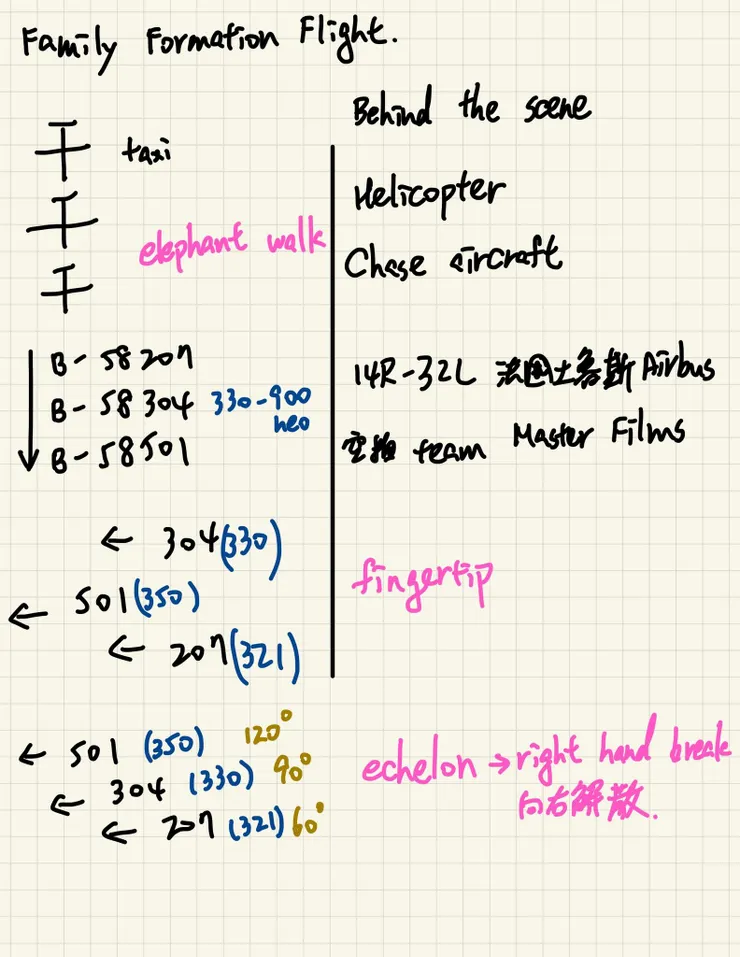 Family Formation Flight.
taxi
elephant walk
B-58207
B-58304 330-900
neo
B-58501
← 304(330)
← 501(350)
← 207(321)
← 501 (350) 120°
← 304 (330) 90°
← 207 (321) 60°
Behind the scene
Helicopter
Chase aircraft
14R-32L 法國土魯斯 Airbus
空拍 team Master Films
fingertip
echelon → right hand break
向右解散.